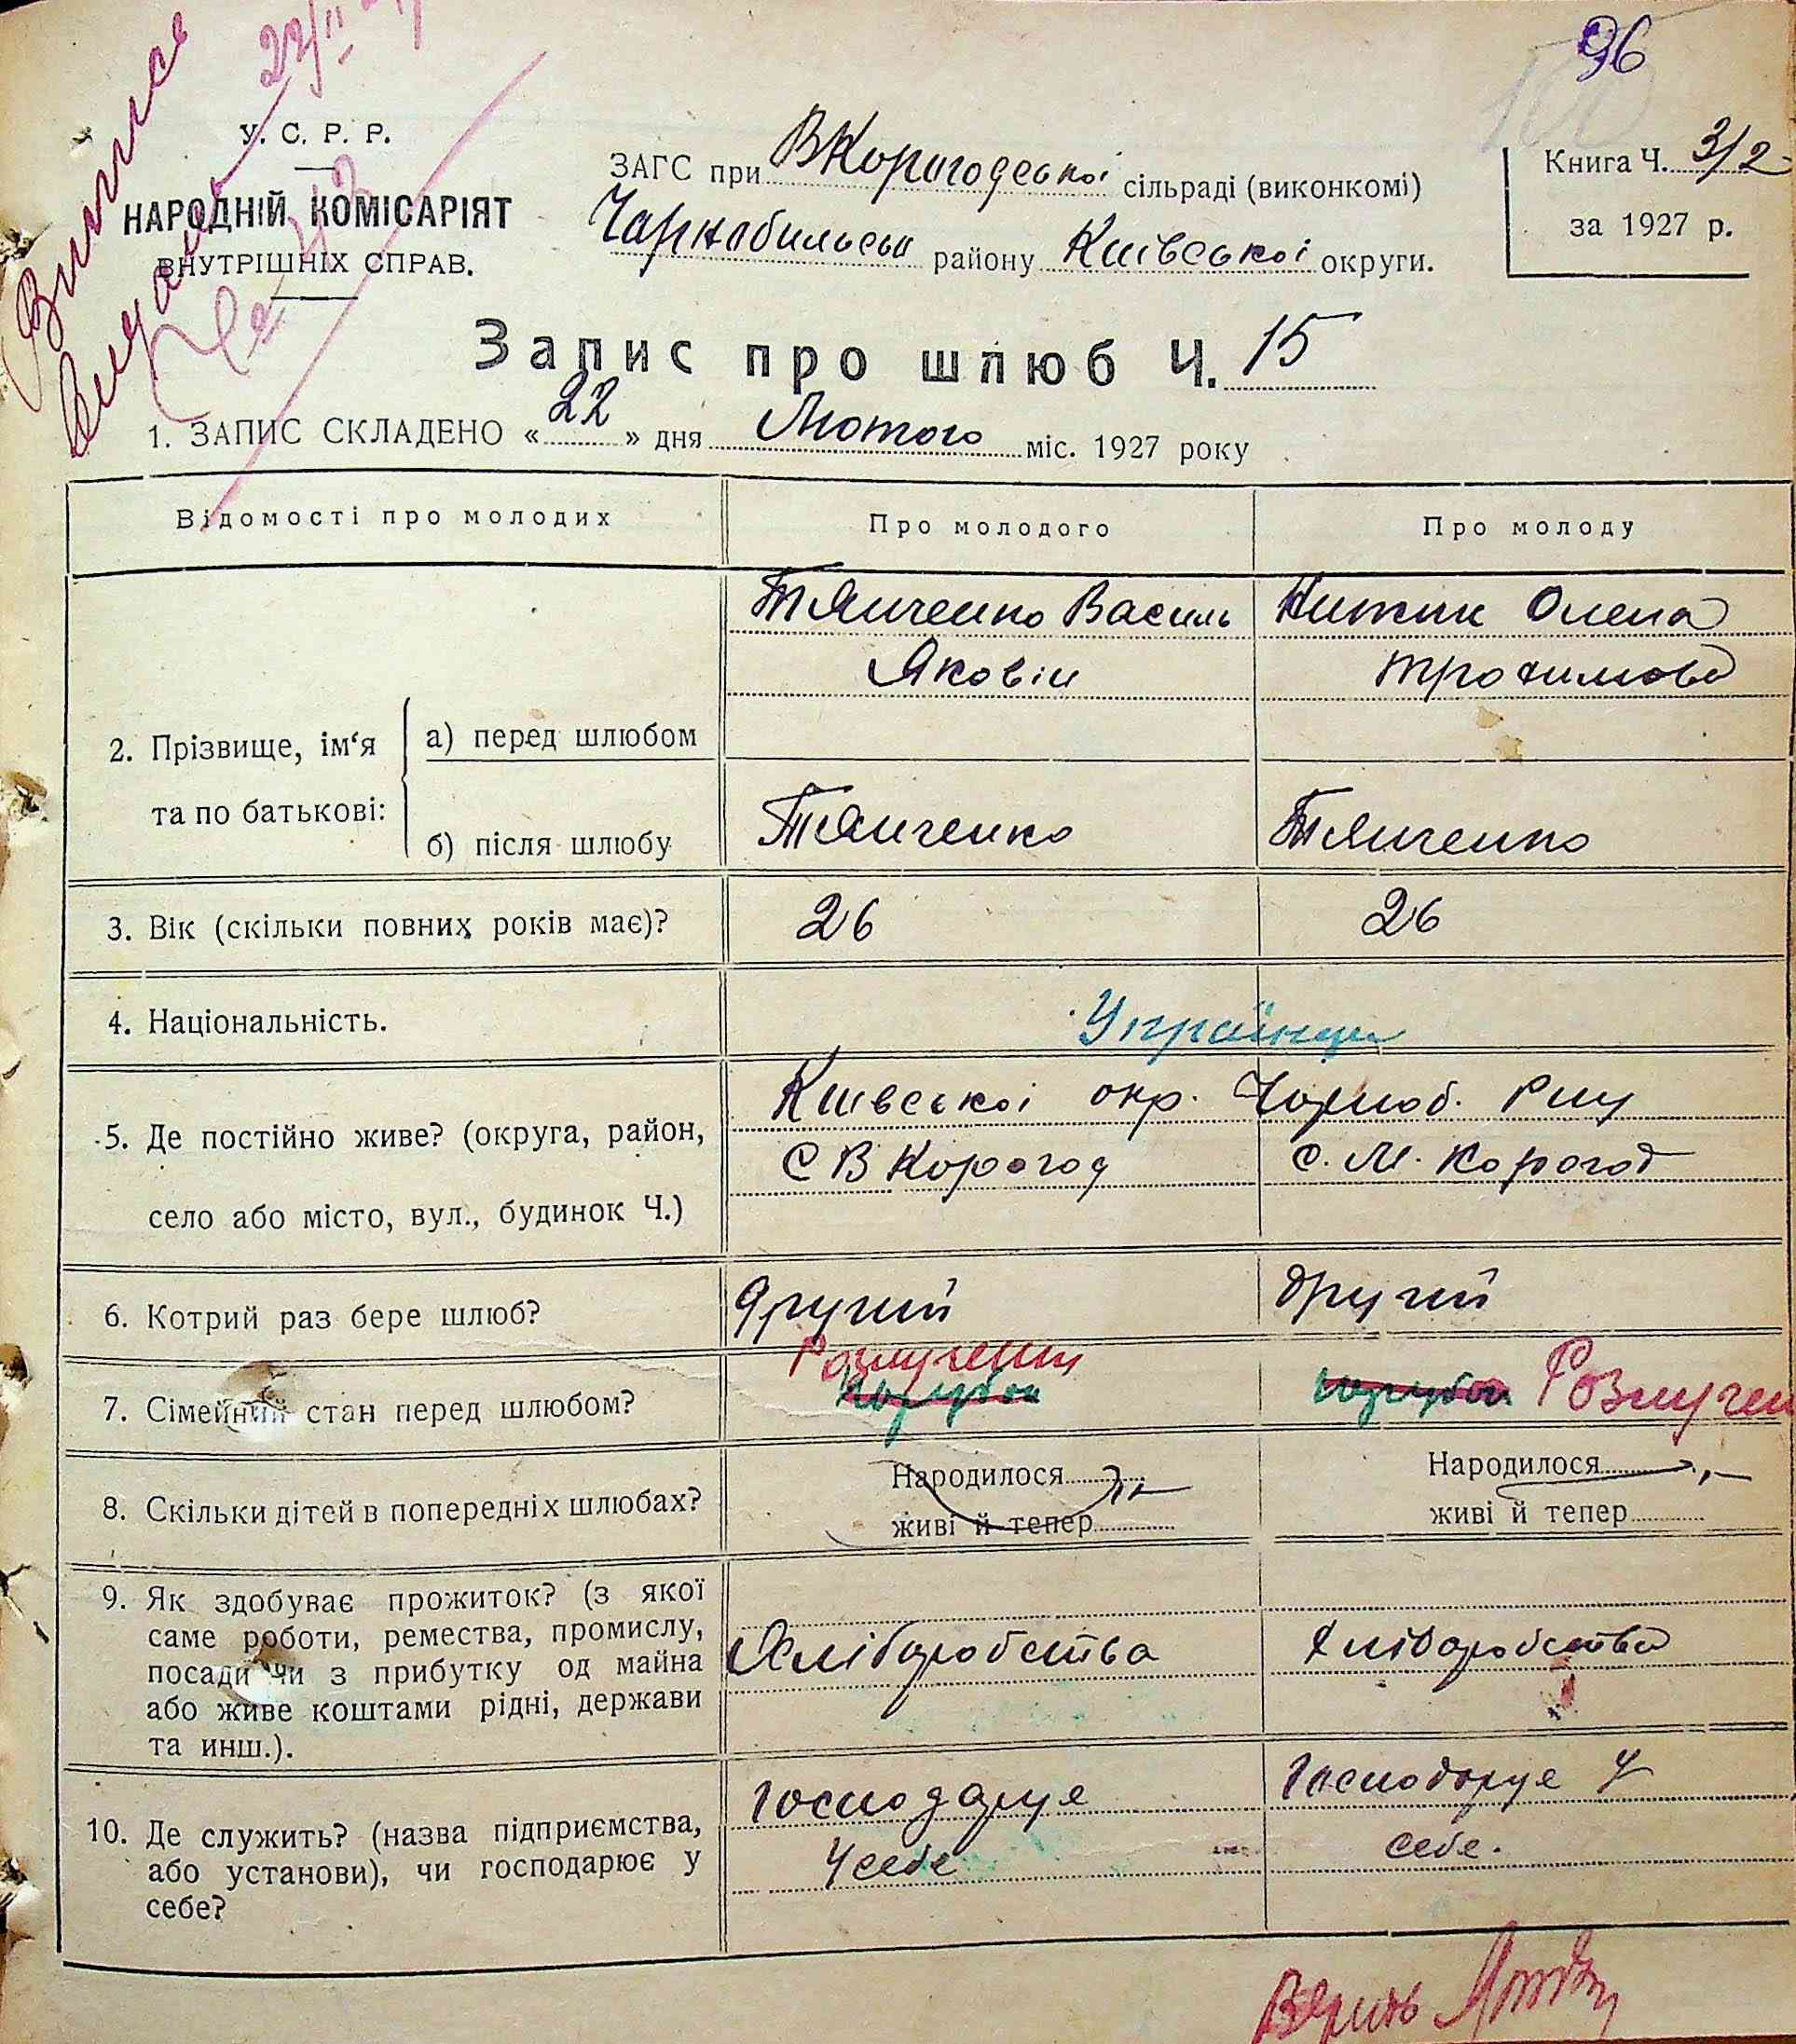 96
Виписъ
22/II
У. С. Р. Р.
НАРОДНІЙ КОМІСАРІЯТ
ВНУТРІШНІХ СПРАВ.
ЗАГС при ВКорогодської сільраді (виконкомі)
Чарнобильськ району Київської округи.
Книга Ч. 3/2
за 1927 р.
Запис про шлюб Ч. 15
1. ЗАПИС СКЛАДЕНО «22» дня Лютого міс. 1927 року
Відомості про молодих
Про молодого
Про молоду
2. Прізвище, ім'я
та по батькові:
а) перед шлюбом
Василь
Яковів
Олена
Трохимова
б) після шлюбу
3. Вік (скільки повних років має)?
26
26
4. Національність.
Українци
5. Де постійно живе? (округа, район,
село або місто, вул., будинок Ч.)
Київської окр. Чорноб. Р-ну
С В Корогод
с. М. Корогод
6. Котрий раз бере шлюб?
другий
другий
7. Сімейний стан перед шлюбом?
Розлучений
Розлучен
8. Скільки дітей в попередніх шлюбах?
Народилося
живі й тепер
Народилося
живі й тепер
9. Як здобуває прожиток? (з якої
саме роботи, ремества, промислу,
посади чи з прибутку од майна
або живе коштами рідні, держави
та инш.).
Хліборобства
Хліборобства
10. Де служить? (назва підприємства,
або установи), чи господарює у
себе?
господарує
у себе
господарує у
себе.